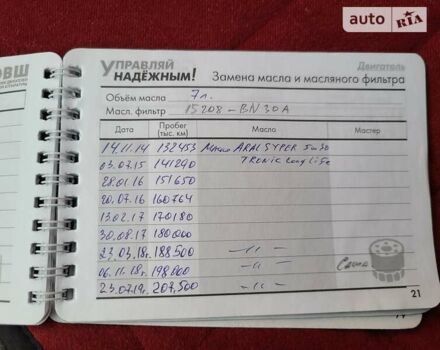 auto RIA
ОВШ
УПРАВЛЯЙ
НАДЁЖНЫМ!
Двигатель
Замена масла и масляного фильтра
Объём масла 7л.
Масл. фильтр 15208-BN30A
Дата Пробег (тыс. км) Масла Мастер
14.11.14 132453 Масло ARAL SYPER 5w30
03.07.15 141290 TRONIC Long Life
28.01.16 151650
20.07.16 160764
13.02.17 170180
30.08.17 180000
23.03.18г. 188.500 -〃-
06.11.18г. 198000 -〃-
23.07.19г. 207,500 -〃-
21